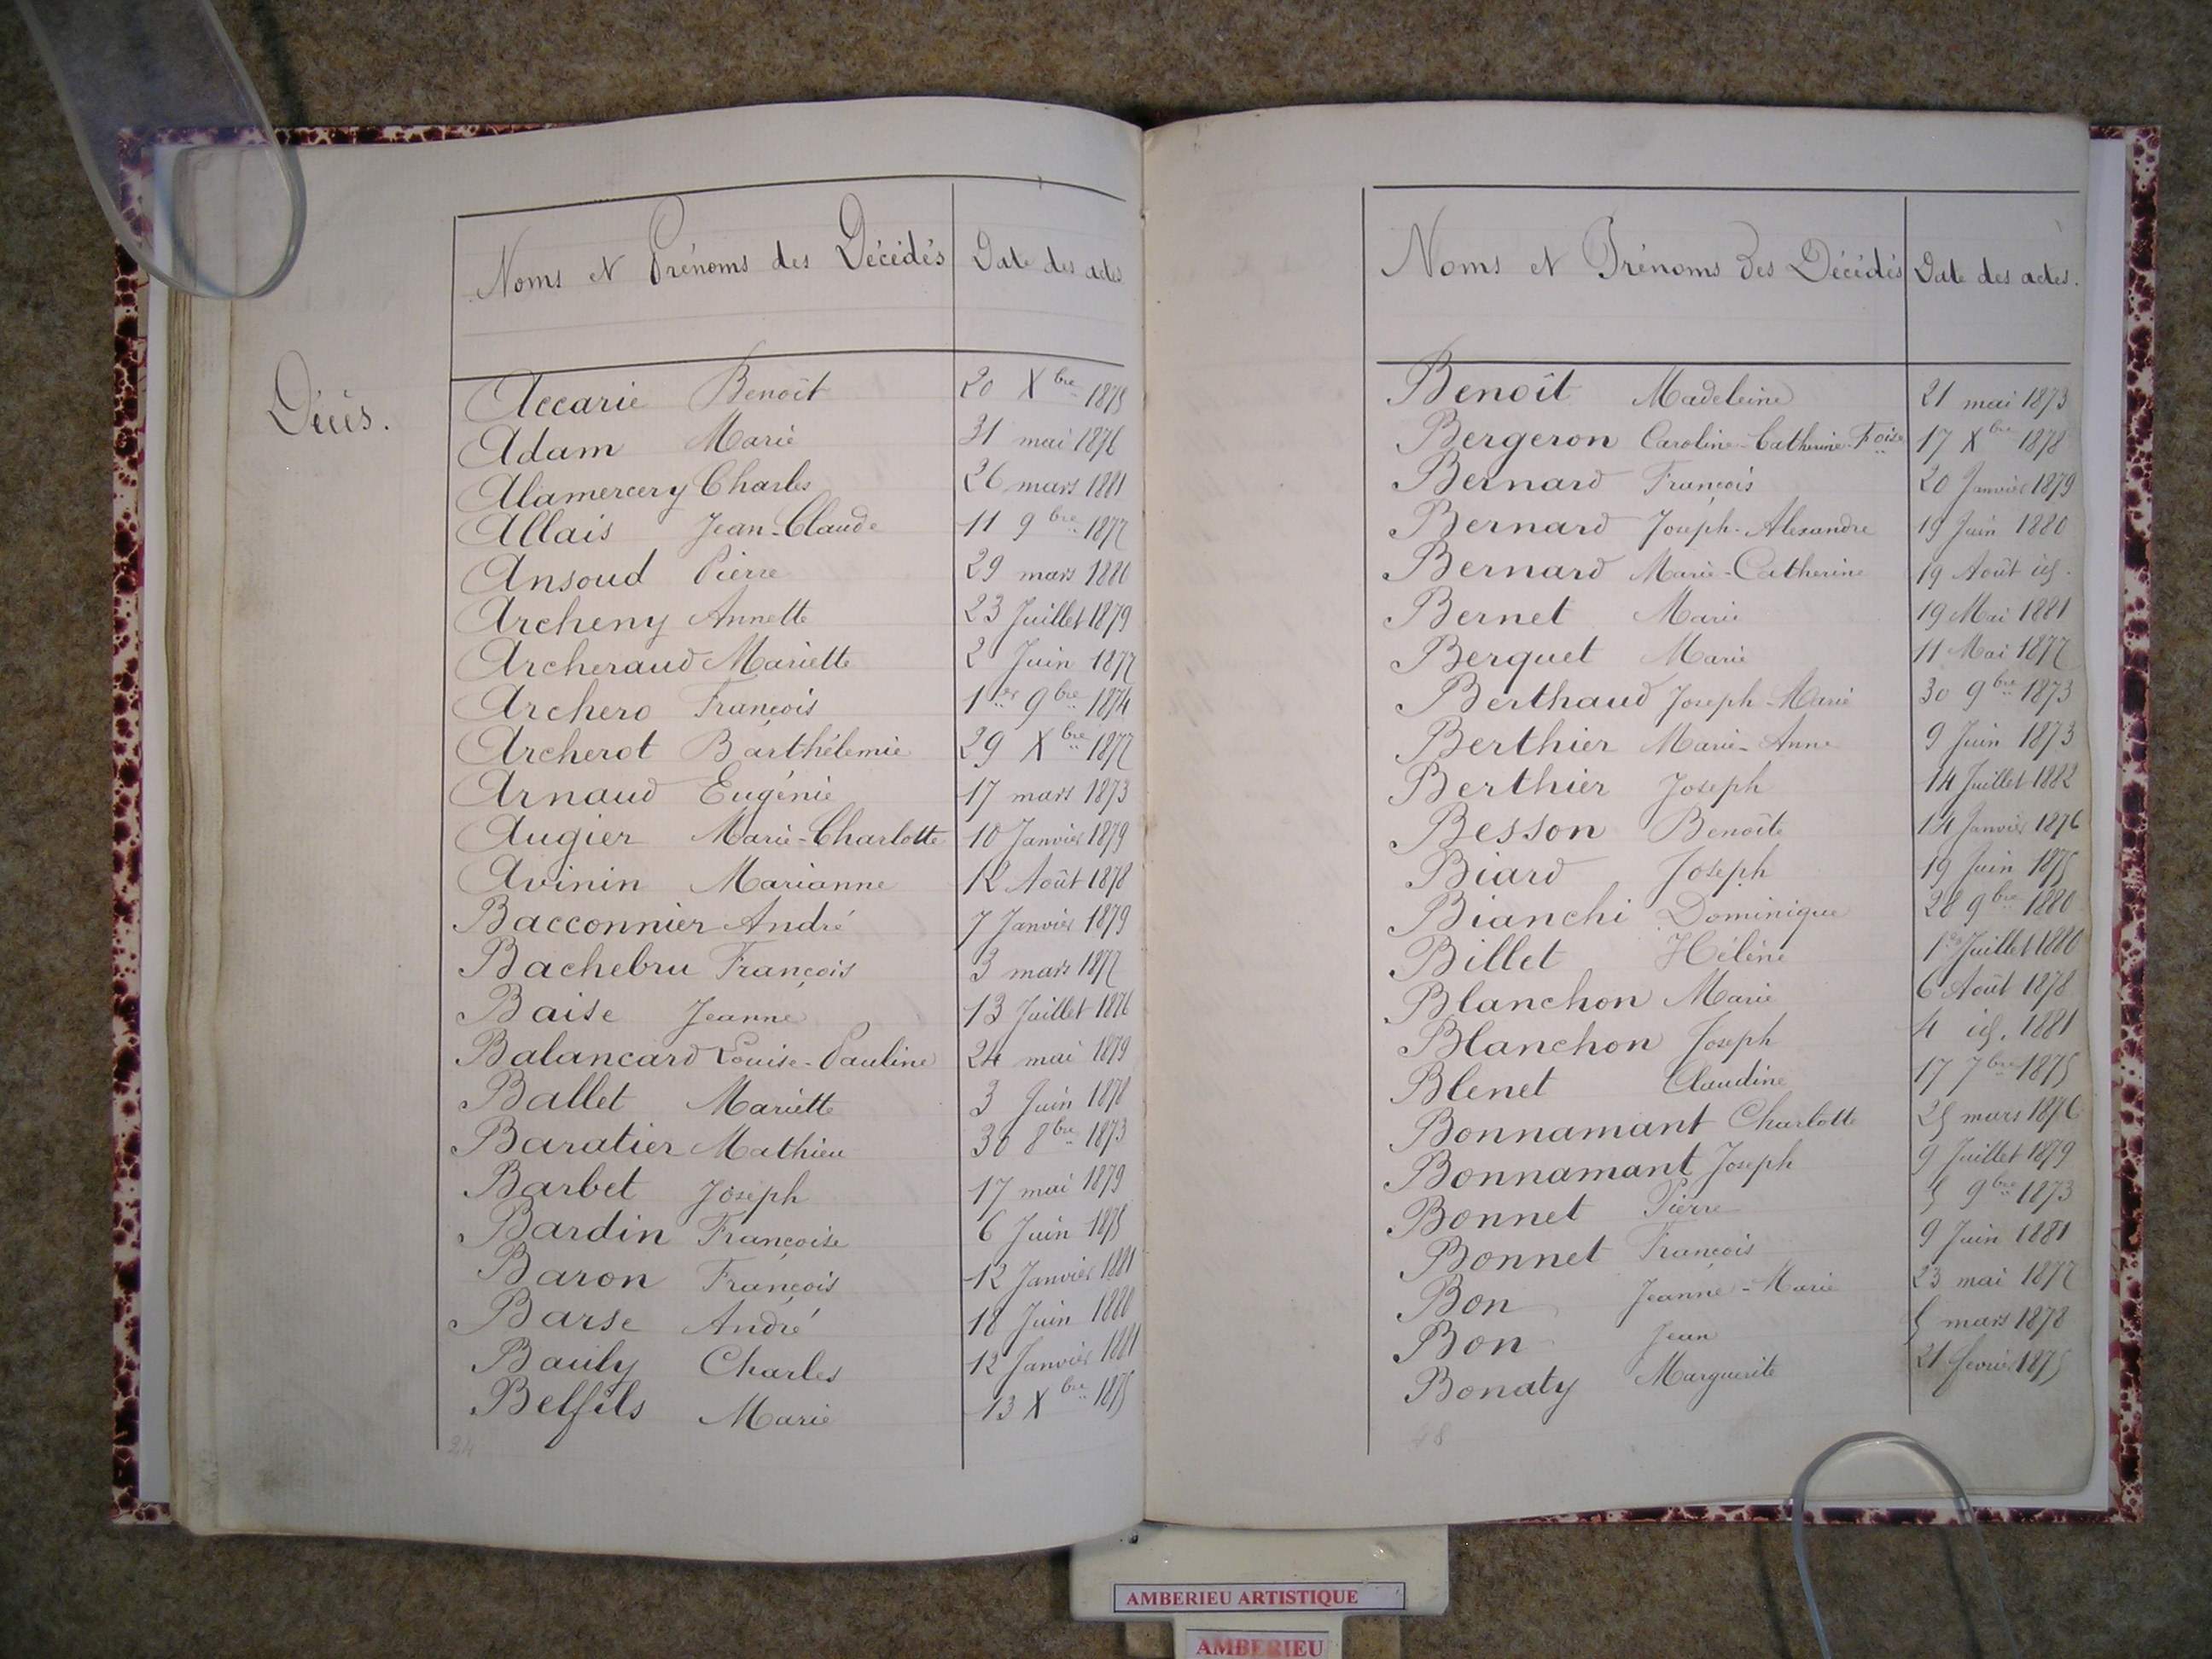 Décès.
Noms et Prénoms des Décédés Date des actes
Accarie Benoît 20 Xbre 1875
Adam Marie 31 mai 1876
Alamercery Charles 26 mars 1881
Allais Jean-Claude 11 9bre 1877
Ansoud Pierre 29 mars 1880
Archeny Annette 23 Juillet 1879
Archeraud Mariette 2 Juin 1877
Archero François 1er 9bre 1874
Archerot Barthélemie 29 Xbre 1877
Arnaud Eugénie 17 mars 1873
Augier Marie-Charlotte 10 Janvier 1879
Avinin Marianne 12 Août 1878
Bacconnier André 7 Janvier 1879
Bachebru François 3 mars 1877
Baise Jeanne 13 Juillet 1876
Balancard Louise-Pauline 24 mai 1879
Ballet Mariette 3 Juin 1878
Baratier Mathieu 30 8bre 1873
Barbet Joseph 17 mai 1879
Bardin Françoise 6 Juin 1875
Baron François 12 Janvier 1881
Barse André 18 Juin 1880
Bauly Charles 12 Janvier 1881
Belfils Marie 13 Xbre 1875
24
Noms et Prénoms des Décédés Date des actes.
Benoît Madeleine 21 mai 1873
Bergeron Caroline-Catherine-Foise 17 Xbre 1878
Bernard François 20 Janvier 1879
Bernard Joseph-Alexandre 19 Juin 1880
Bernard Marie-Catherine 19 Août id.
Bernet Marie 19 Mai 1881
Berquet Marie 11 Mai 1877
Berthaud Joseph-Marie 30 9bre 1873
Berthier Marie-Anne 9 Juin 1873
Berthier Joseph 14 Juillet 1882
Besson Benoîte 14 Janvier 1876
Biard Joseph 19 Juin 1875
Bianchi Dominique 28 9bre 1880
Billet Hélène 1er Juillet 1880
Blanchon Marie 6 Août 1878
Blanchon Joseph 4 id. 1881
Blenet Claudine 17 7bre 1875
Bonnamant Charlotte 25 mars 1876
Bonnamant Joseph 9 Juillet 1879
Bonnet Pierre 5 9bre 1873
Bonnet François 9 Juin 1881
Bon Jeanne-Marie 23 mai 1877
Bon Jean 5 mars 1878
Bonaty Marguerite 21 fevrier 1875
AMBERIEU ARTISTIQUE
AMBERIEU